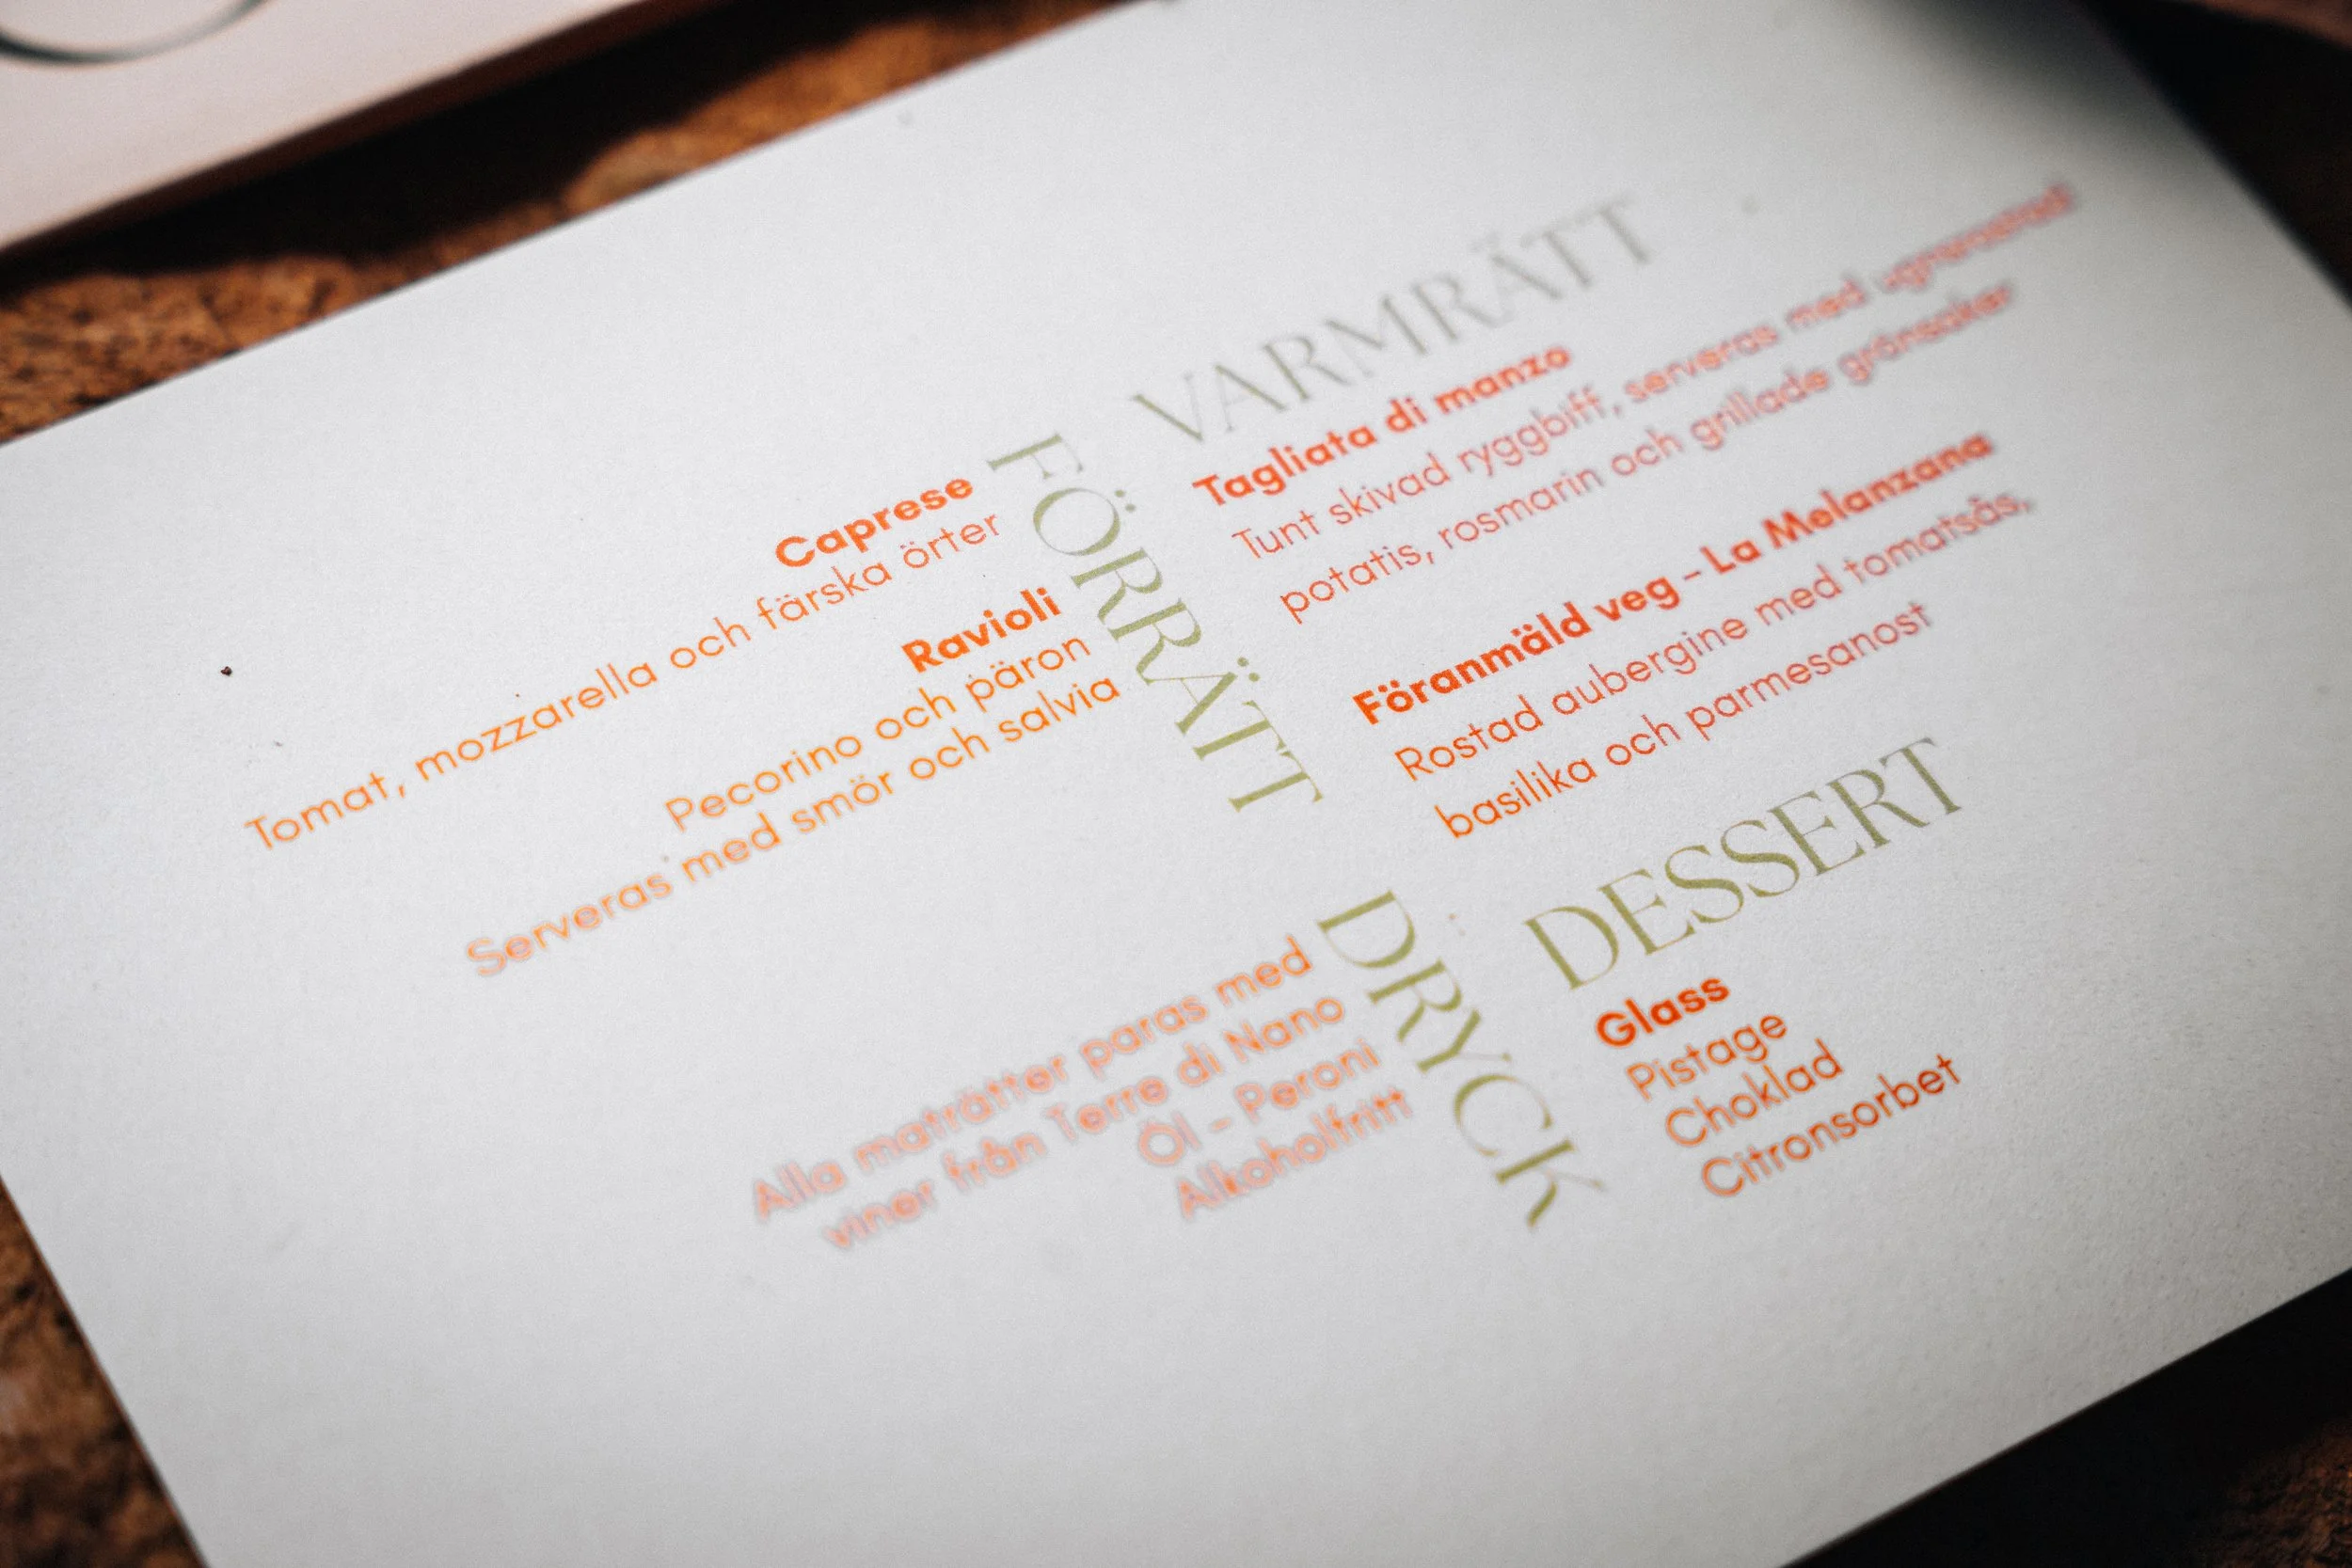 FÖRRÄTT
Caprese
Tomat, mozzarella och färska örter
Ravioli
Pecorino och päron
Serveras med smör och salvia
VARMRÄTT
Tagliata di manzo
Tunt skivad ryggbiff, serveras med ugnsrostad
potatis, rosmarin och grillade grönsaker
Föranmäld veg - La Melanzana
Rostad aubergine med tomatsås,
basilika och parmesanost
DRYCK
Alla maträtter paras med
viner från Terre di Nano
Öl - Peroni
Alkoholfritt
DESSERT
Glass
Pistage
Choklad
Citronsorbet